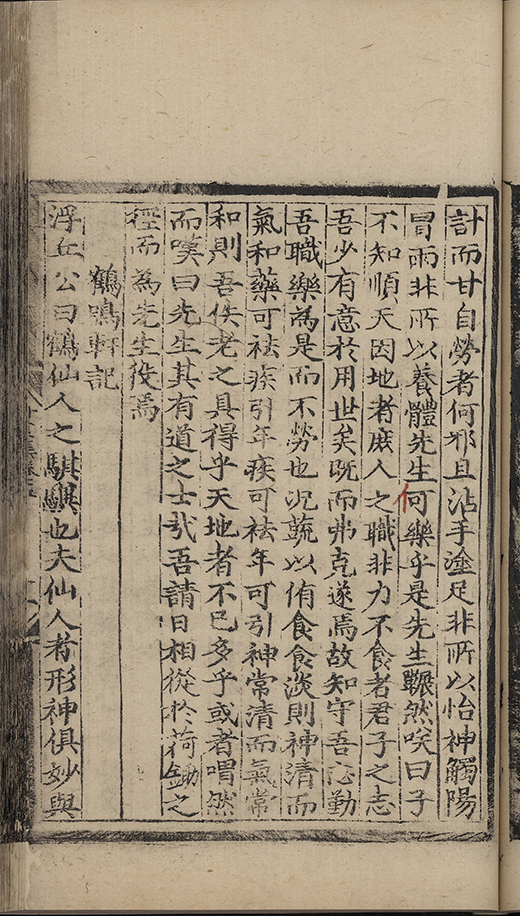 計而甘自勞者何邪且沾手塗足非所以怡神觸陽
冒雨非所以養體先生何樂乎是先生囅然笑曰子
不知順天因地者庶人之職非力不食者君子之志
吾少有意於用世矣既而弗克遂焉故知守吾心勤
吾職樂為是而不勞也况蔬以侑食食淡則神清而
氣和藥可祛疾引年疾可祛年可引神常清而氣常
和則吾佚老之具得乎天地者不已多乎或者喟然
而嘆曰先生其有道之士㢤吾請日相從於荷鋤之
徑而為先生役焉
鶴鳴軒記
浮丘公曰鶴仙人之騏驥也夫仙人者形神俱妙與